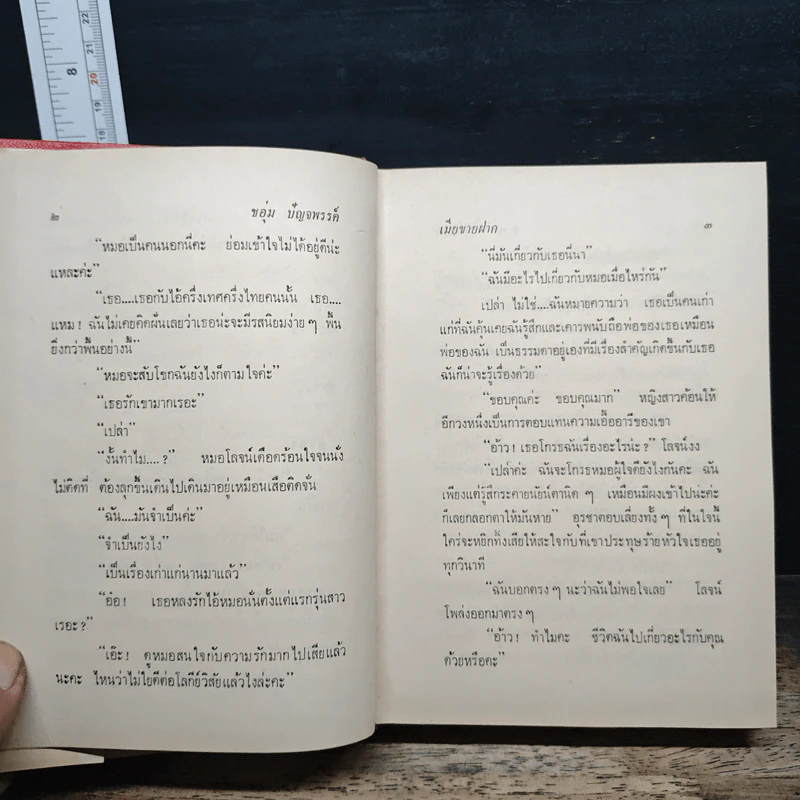 8
22
21
20
19
18
๒
ชอุ่ม ปัญจพรรค์
“หมอเป็นคนนอกนี่คะ ย่อมเข้าใจไม่ได้อยู่ดีน่ะ
แหละค่ะ”
“เธอ....เธอกับไอ้ครึ่งเทศครึ่งไทยคนนั้น เธอ....
แหม! ฉันไม่เคยคิดฝันเลยว่าเธอน่ะจะมีรสนิยมง่าย ๆ พื้น
ยิ่งกว่าพื้นอย่างนี้”
“หมอจะสับโขกฉันยังไงก็ตามใจค่ะ”
“เธอรักเขามากเรอะ”
“เปล่า”
“งั้นทำไม....?” หมอโลจน์เดือดร้อนใจจนนั่ง
ไม่ติดที่ ต้องลุกขึ้นเดินไปเดินมาอยู่เหมือนเสือติดจั่น
“ฉัน....มันจำเป็นค่ะ”
“จำเป็นยังไง”
“เป็นเรื่องเก่าแก่นานมาแล้ว”
“อ๋อ! เธอหลงรักไอ้หมอนั่นตั้งแต่แรกรุ่นสาว
เรอะ?”
“เอ๊ะ! ดูหมอสนใจกับความรักมากไปเสียแล้ว
นะคะ ไหนว่าไม่ใยดีต่อโลกีย์วิสัยแล้วไงล่ะคะ”
เมียขายฝาก
๓
“นี่มันเกี่ยวกับเธอนี่นา”
“ฉันมีอะไรไปเกี่ยวกับหมอเมื่อไหร่กัน”
เปล่า ไม่ใช่....ฉันหมายความว่า เธอเป็นคนเก่า
แก่ที่ฉันคุ้นเคยฉันรู้สึกและเคารพนับถือพ่อของเธอเหมือน
พ่อของฉัน เป็นธรรมดาอยู่เองที่มีเรื่องสำคัญเกิดขึ้นกับเธอ
ฉันก็น่าจะรู้เรื่องด้วย”
“ขอบคุณค่ะ ขอบคุณมาก” หญิงสาวค้อนให้
อีกวงหนึ่งเป็นการตอบแทนความเอื้ออารีของเขา
“อ้าว! เธอโกรธฉันเรื่องอะไรน่ะ?” โลจน์งง
“เปล่าค่ะ ฉันจะโกรธหมอผู้ใจดียังไงกันคะ ฉัน
เพียงแต่รู้สึกระคายนัยน์ตานิด ๆ เหมือนมีผงเข้าไปน่ะค่ะ
ก็เลยกลอกตาให้มันหาย” อุรชาตอบเลี่ยงทั้ง ๆ ที่ในใจนี้
ใคร่จะหยิกทึ้งเสียให้สะใจกับที่เขาประทุษร้ายหัวใจเธออยู่
ทุกวินาที
“ฉันบอกตรง ๆ นะว่าฉันไม่พอใจเลย” โลจน์
โพล่งออกมาตรง ๆ
“อ้าว! ทำไมคะ ชีวิตฉันไปเกี่ยวอะไรกับคุณ
ด้วยหรือคะ”